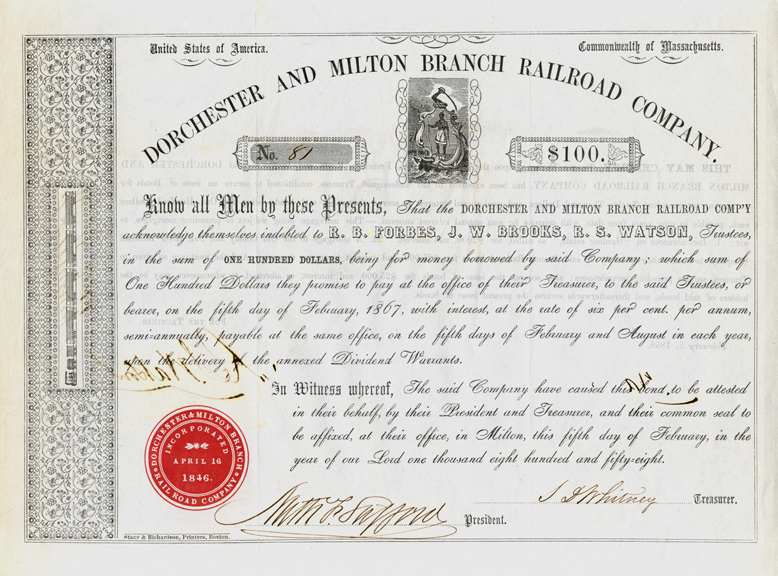 United States of America.
Commonwealth of Massachusetts.
DORCHESTER AND MILTON BRANCH RAILROAD COMPANY.
No. 81
$100.
Know all Men by these Presents, That the DORCHESTER AND MILTON BRANCH RAILROAD COMP'Y
acknowledge themselves indebted to R. B. FORBES, J. W. BROOKS, R. S. WATSON, Trustees,
in the sum of ONE HUNDRED DOLLARS, being for money borrowed by said Company; which sum of
One Hundred Dollars they promise to pay at the office of their Treasurer, to the said Trustees, or
bearer, on the fifth day of February, 1867, with interest, at the rate of six per cent. per annum,
semi-annually, payable at the same office, on the fifth days of February and August in each year,
upon the delivery of the annexed Dividend Warrants.
In Witness whereof, The said Company have caused this bond to be attested
in their behalf, by their President and Treasurer, and their common seal to
be affixed, at their office, in Milton, this fifth day of February, in the
year of our Lord one thousand eight hundred and fifty-eight.
DORCHESTER & MILTON BRANCH
INCORPORATED
APRIL 16
1846.
RAIL ROAD COMPANY
Nath F. Safford President.
Whitney Treasurer.
Stacy & Richardson, Printers, Boston.